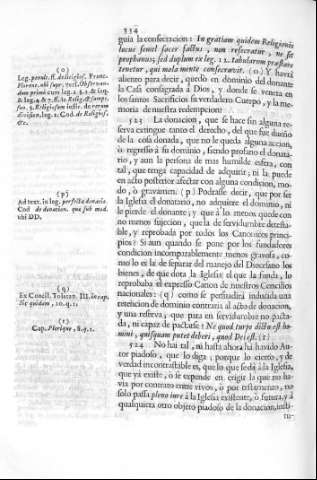 334
guia la consecracion: In gratiam quidem Religionis
lucus semel sacer factus, non resecratur, ne se
prophanus; sed duplum ex leg. 12. tabularum præstare
tenetur, qui mala mente consecravit. (o) Y havrá
aliento para decir, quedò en dominio del donante
la Casa consagrada à Dios, y donde se venera en
los santos Sacrificios su verdadero Cuerpo, y la me-
moria de nuestra redempcion?
523 La donacion, que se hace sin alguna re-
serva extingue tanto el derecho, del que fue dueño
de la cosa donada, que no le queda alguna accion,
ò regresso à su dominio, siendo profano el donata-
rio, y aun la persona de mas humilde esfera, con
tal, que tenga capacidad de adquirir; ni la puede
en acto posterior afectar con alguna condicion, mo-
do, ò gravamen. (p) Podràse decir, que por ser
la Iglesia el donatario, no adquiere el dominio, ni
le pierde el donante; y que à lo menos quede con
no menos sujecion, que la de servidumbre detesta-
ble, y reprobada por todos los Canonicos princi-
pios? Si aun quando se pone por los fundadores
condicion incomparablemente menos gravosa, co-
mo lo es la de separar del manejo del Diocesano los
bienes, de que dota la Iglesia el que la funda, lo
reprobaba el expresso Canon de nuestros Concilios
nacionales: (q) como se persuadirà inducida una
retencion de dominio contraria al acto de donacion,
y una reserva, que para en servidumbre no pacta-
da, ni capaz de pactarse? Ne quod turpe dictu est ho-
mini, quisquam putet deberi, quod Dei est. (r)
524 No hai tal, ni hasta ahora há havido Au-
tor piadoso, que lo diga; porque lo cierto, y de
verdad incontrastable es, que lo que se dà à la Iglesia,
que yà existe, ò se expende en erigir la que no ha-
via por contrato entre vivos, ò por testamento, no
solo passa pleno iure à la Iglesia existente, ò futura, y à
qualquiera otro objeto piadoso de la donacion, insti-
tu-
(o)
Leg. penult. ff.
(p)
Ad text. in leg. perfecta donatio
Cod. de donation. quæ sub mod.
ubi DD.
(q)
Ex Concil. Toletan. III. in cap.
Sic quidem, 10. q. 1.
(r)
Cap. Plerique, 8. q. 1.